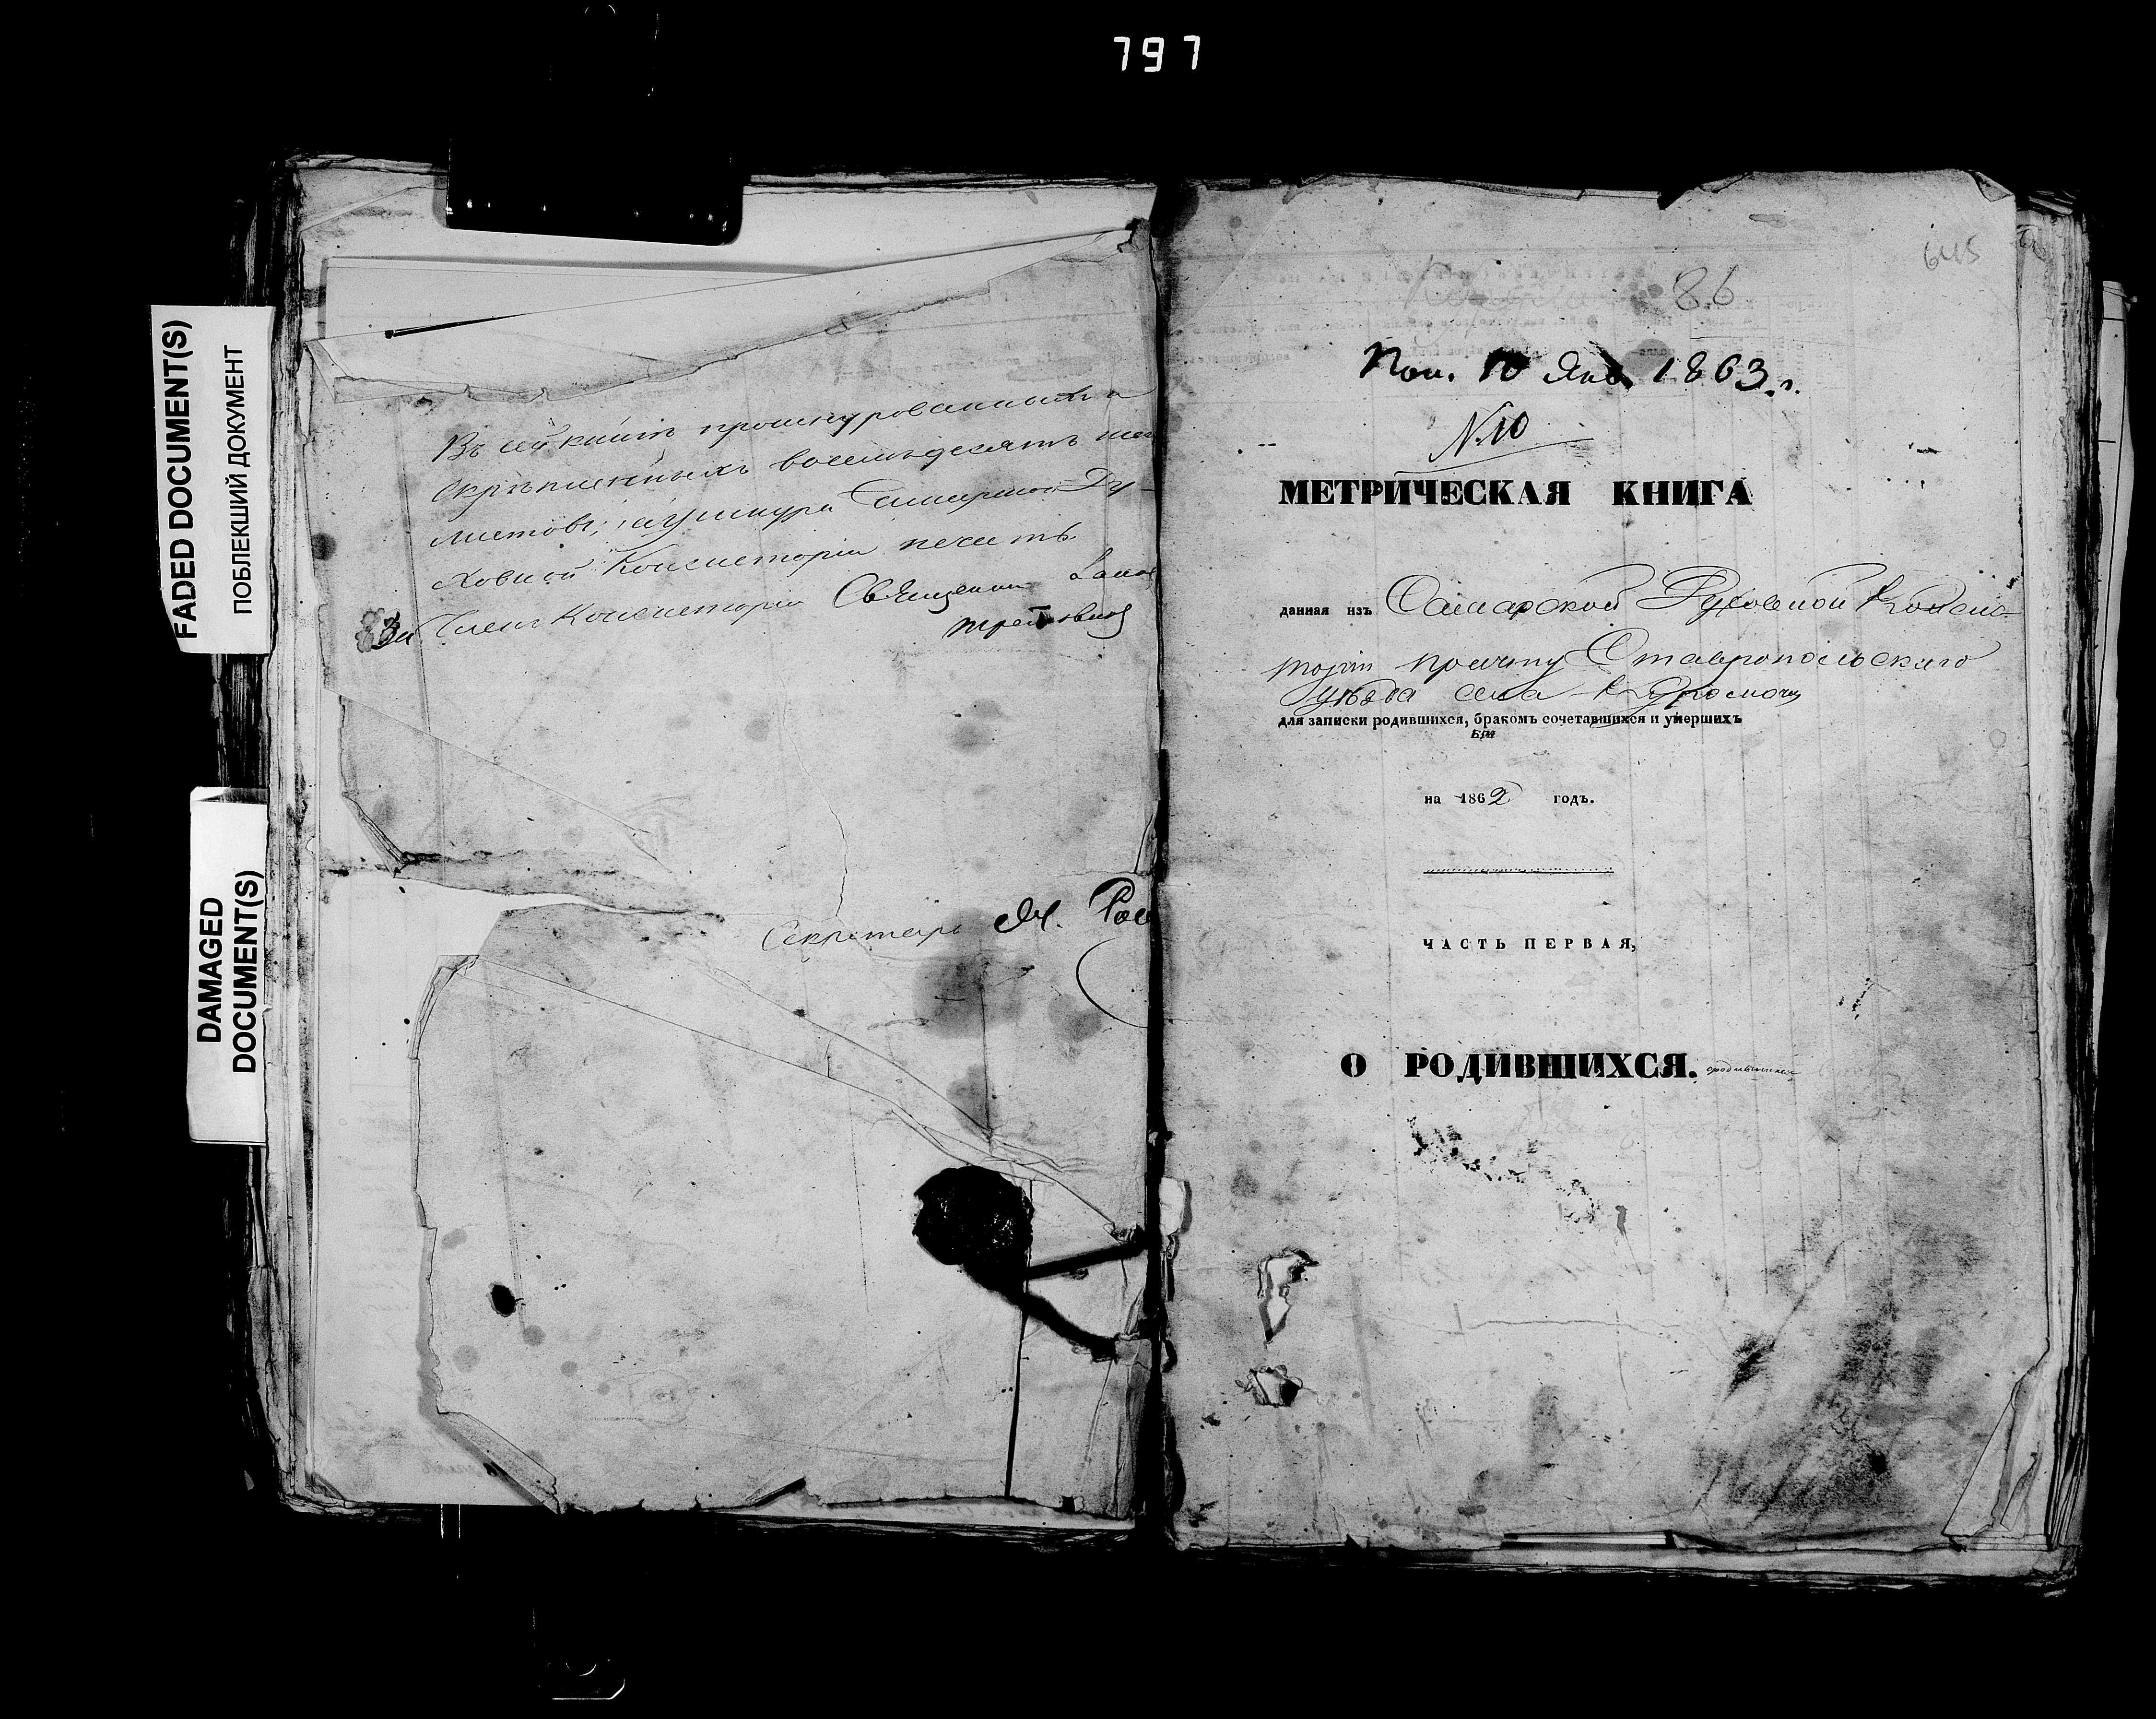 797
FADED DOCUMENT(S)
ПОБЛЕКШИЙ ДОКУМЕНТ
DAMAGED
DOCUMENT(S)
Въ сей книгѣ прошнурованныхъ и
скрѣпленныхъ восемьдесятъ
листовъ; а у шнура Самарской Ду-
ховной Консисторіи печать.
Членъ Консисторіи Священникъ
Секретарь М.
645
86
Пол. 10 Янв 1863 г.
№ 10
МЕТРИЧЕСКАЯ КНИГА
данная изъ Самарской Духовной Консис-
торіи причту Ставропольскаго
уѣзда села Курумочи
для записки родившихся, бракомъ сочетавшихся и умершихъ
на 1862 годъ.
ЧАСТЬ ПЕРВАЯ,
О РОДИВШИХСЯ. ородившихся